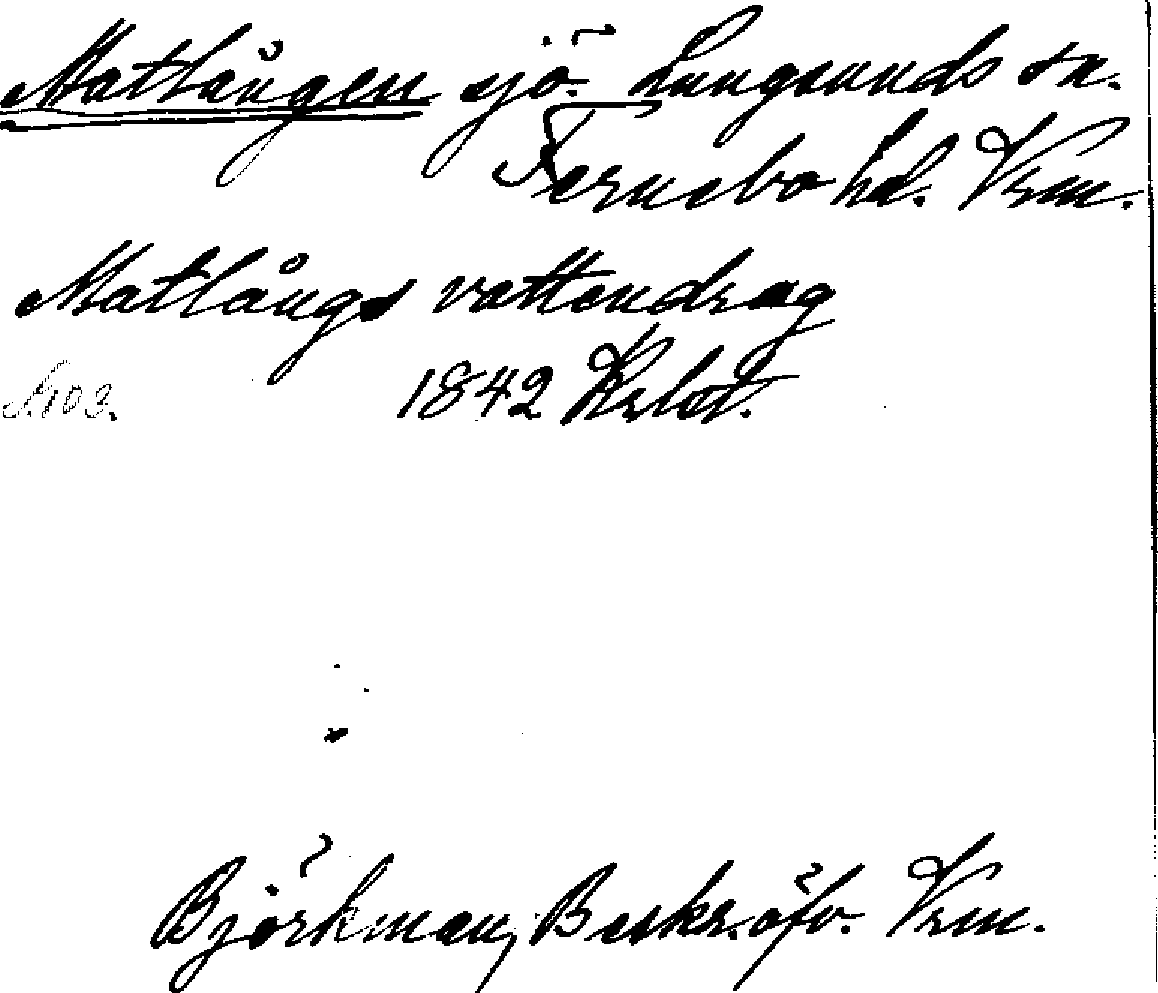 Matlången sjö. Lungsunds sn.
Fernebo hd. Vrm.
Matlångs vattendrag
1842
Björkman, Beskr. öfv. Vrm.